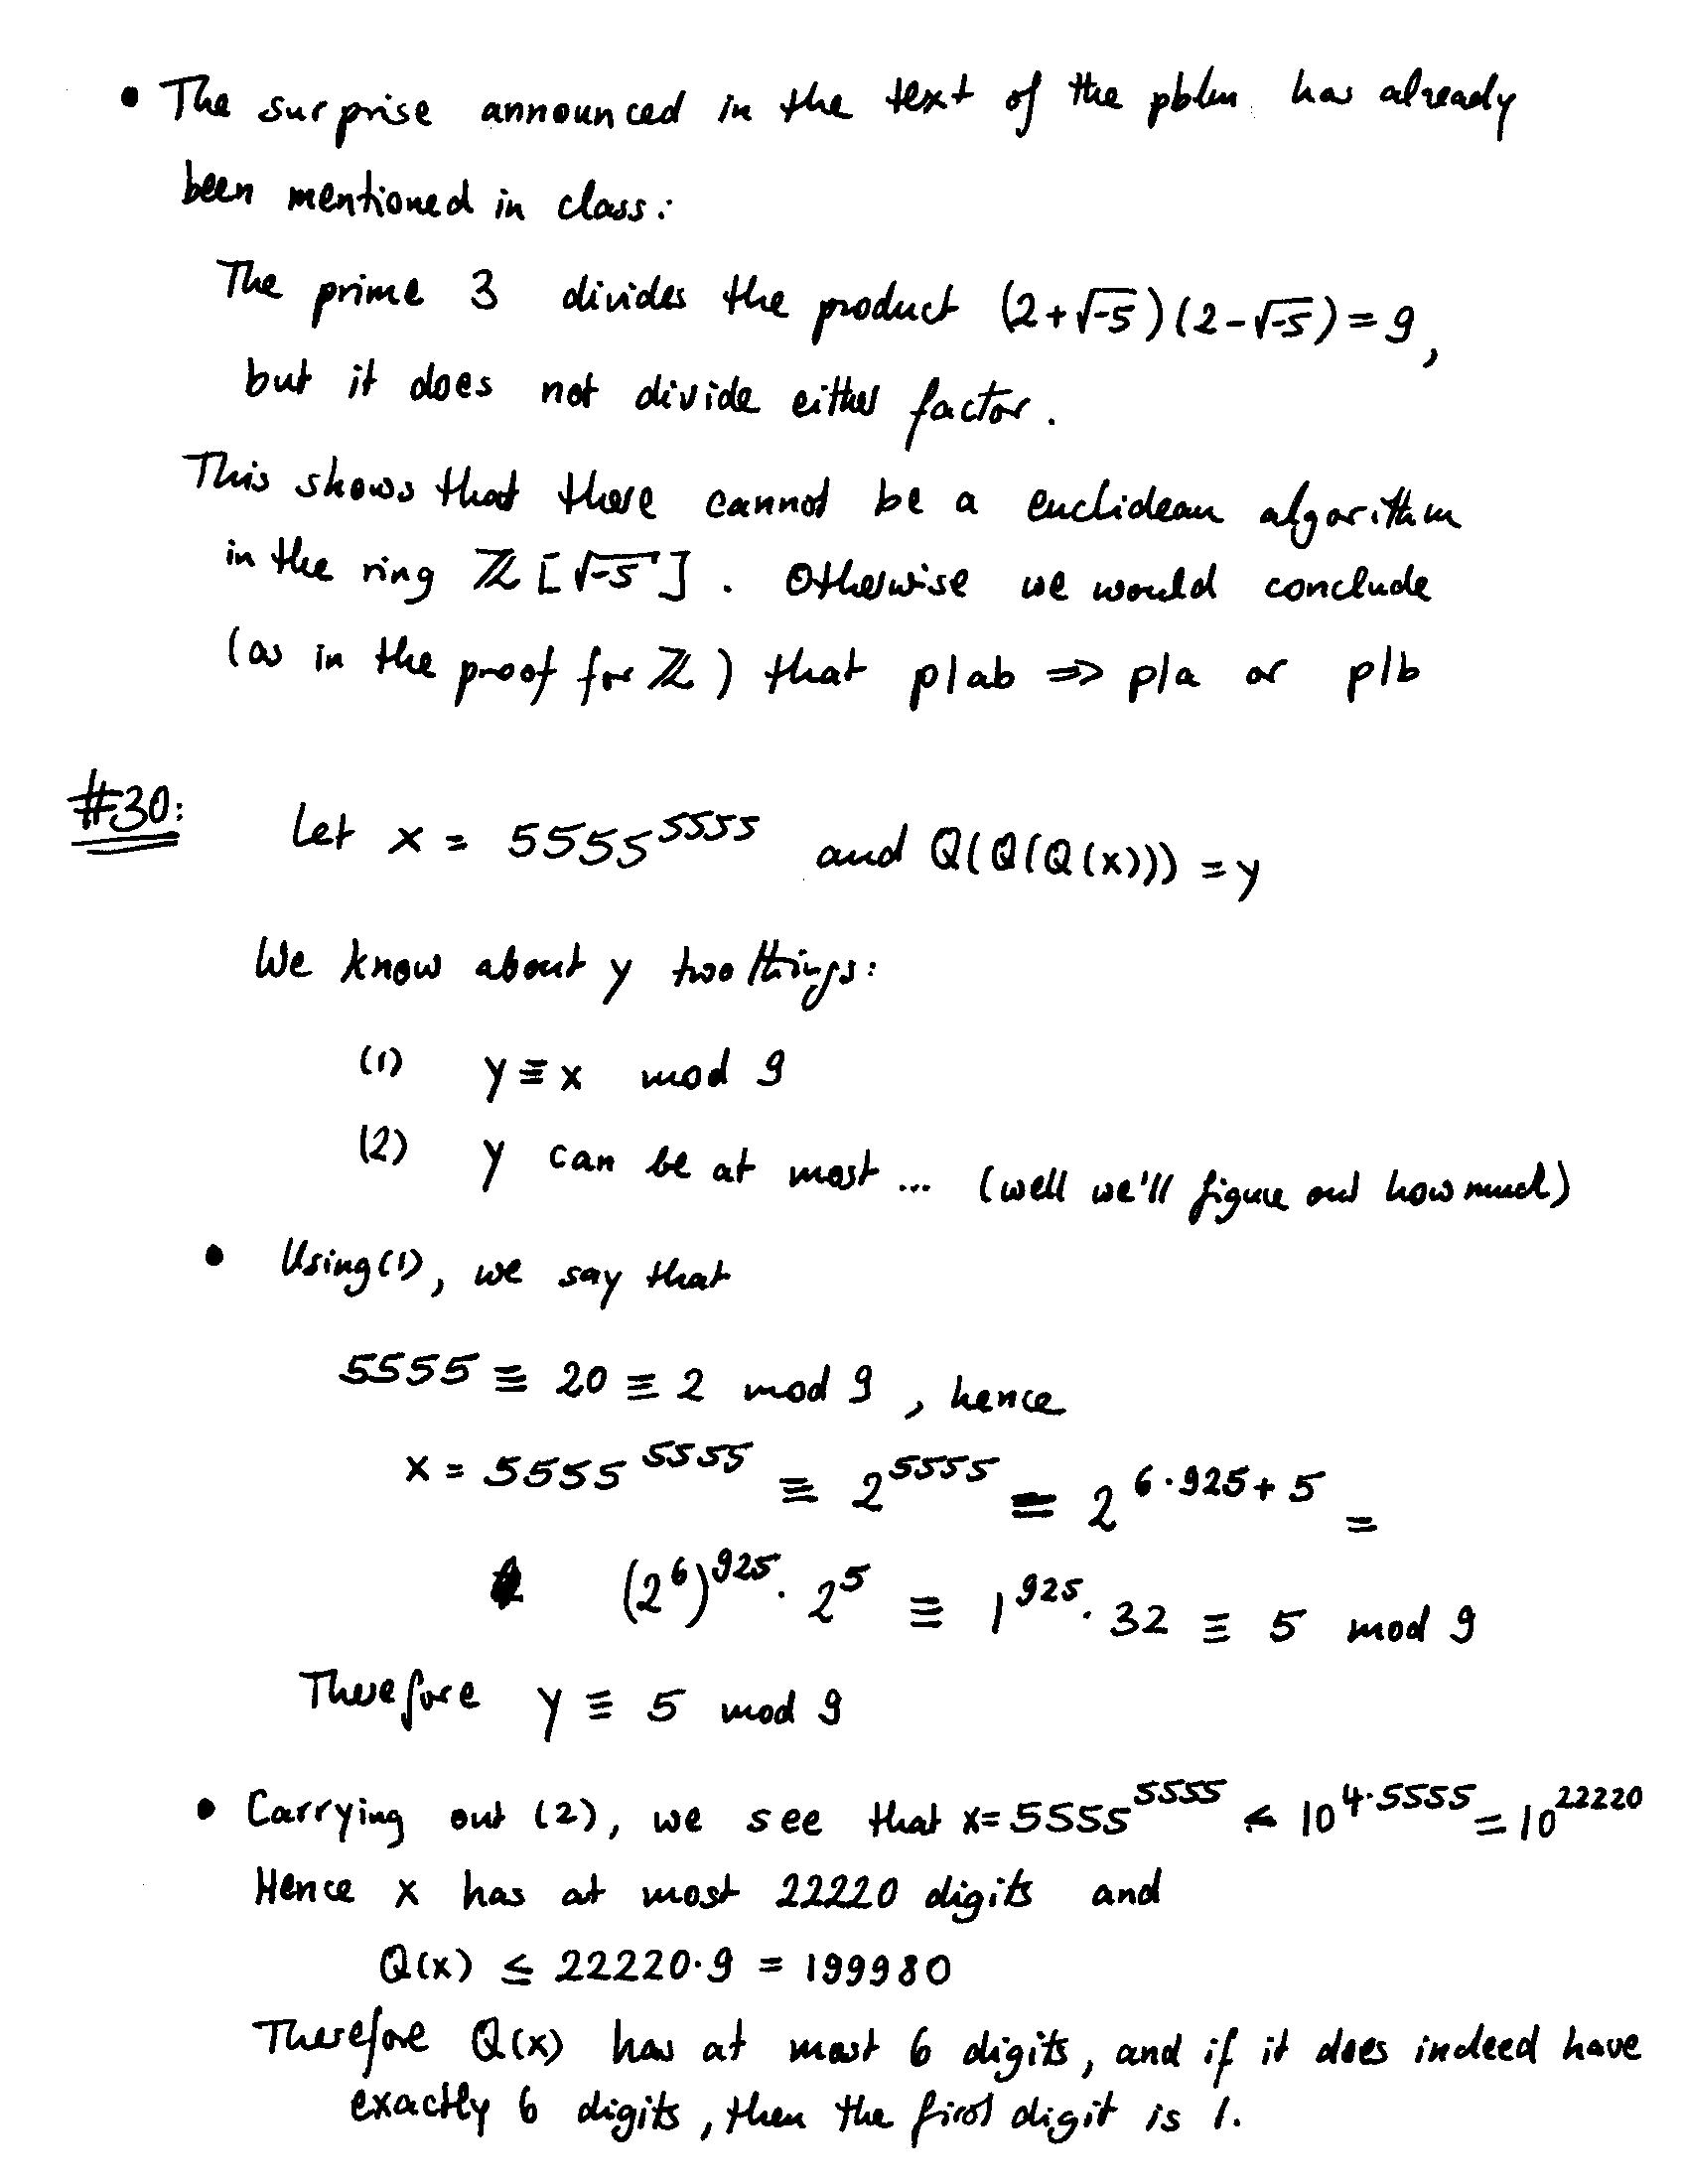 • The surprise announced in the text of the pblm. has already
been mentioned in class:
The prime 3 divides the product (2+√-5)(2-√-5) = 9,
but it does not divide either factor.
This shows that there cannot be a euclidean algorithm
in the ring ℤ[√-5]. Otherwise we would conclude
(as in the proof for ℤ) that p|ab ⇒ p|a or p|b
#30: Let x = 5555^5555 and Q(Q(Q(x))) = y
We know about y two things:
(1) y ≡ x mod 9
(2) y can be at most ... (well we'll figure out how much)
• Using (1), we say that
5555 ≡ 20 ≡ 2 mod 9, hence
x = 5555^5555 ≡ 2^5555 = 2^(6·925+5) =
(2^6)^925 · 2^5 ≡ 1^925 · 32 ≡ 5 mod 9
Therefore y ≡ 5 mod 9
• Carrying out (2), we see that x = 5555^5555 < 10^(4·5555) = 10^22220
Hence x has at most 22220 digits and
Q(x) ≤ 22220·9 = 199980
Therefore Q(x) has at most 6 digits, and if it does indeed have
exactly 6 digits, then the first digit is 1.